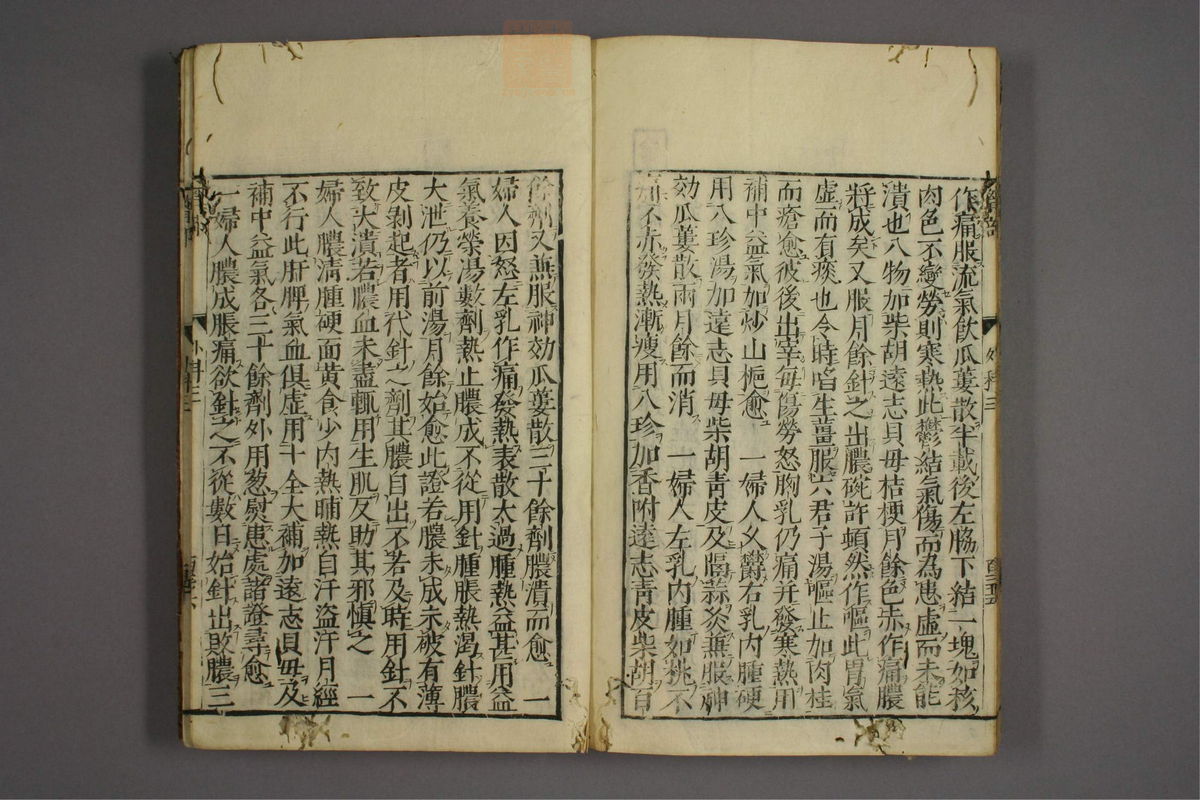 作痛服流氣飲瓜蔞散半載後左脇下結一塊如核
肉色不變勞則寒熱此鬱結氣傷而為患虛而未能
潰也八物加柴胡遠志貝母桔梗月餘色赤作痛膿
將成矣又服月餘針之出膿碗許頓然作嘔此胃氣
虛而有痰也令時啗生薑服六君子湯嘔止加肉桂
而瘡愈彼後出宰毎傷勞怒胸乳仍痛并發寒熱用
補中益氣加炒山梔愈 一婦人久欝右乳內腫硬
用八珍湯加遠志貝母柴胡青皮及隔蒜灸兼服神
効瓜蔞散兩月餘而消 一婦人左乳內腫如桃不
不赤發熱漸瘦用八珍加香附遠志青皮柴胡百
餘劑又兼服神効瓜蔞散三十餘劑膿潰而愈 一
婦人因怒左乳作痛發熱表散太過腫熱益甚用益
氣養榮湯數劑熱止膿成不從用針腫脹熱渴針膿
大泄仍以前湯月餘始愈此證若膿未成未破有薄
皮剝起者用代針之劑其膿自出不若及時用針不
致大潰若膿血未盡輒用生肌反助其邪慎之 一
婦人膿清腫硬面黃食少內熱晡熱自汗盜汗月經
不行此肝脾氣血俱虛用十全大補加遠志貝母及
補中益氣各三十餘劑外用葱熨患處諸證尋愈
一婦人膿成脹痛欲針之不從數日始針出敗膿三
外科三